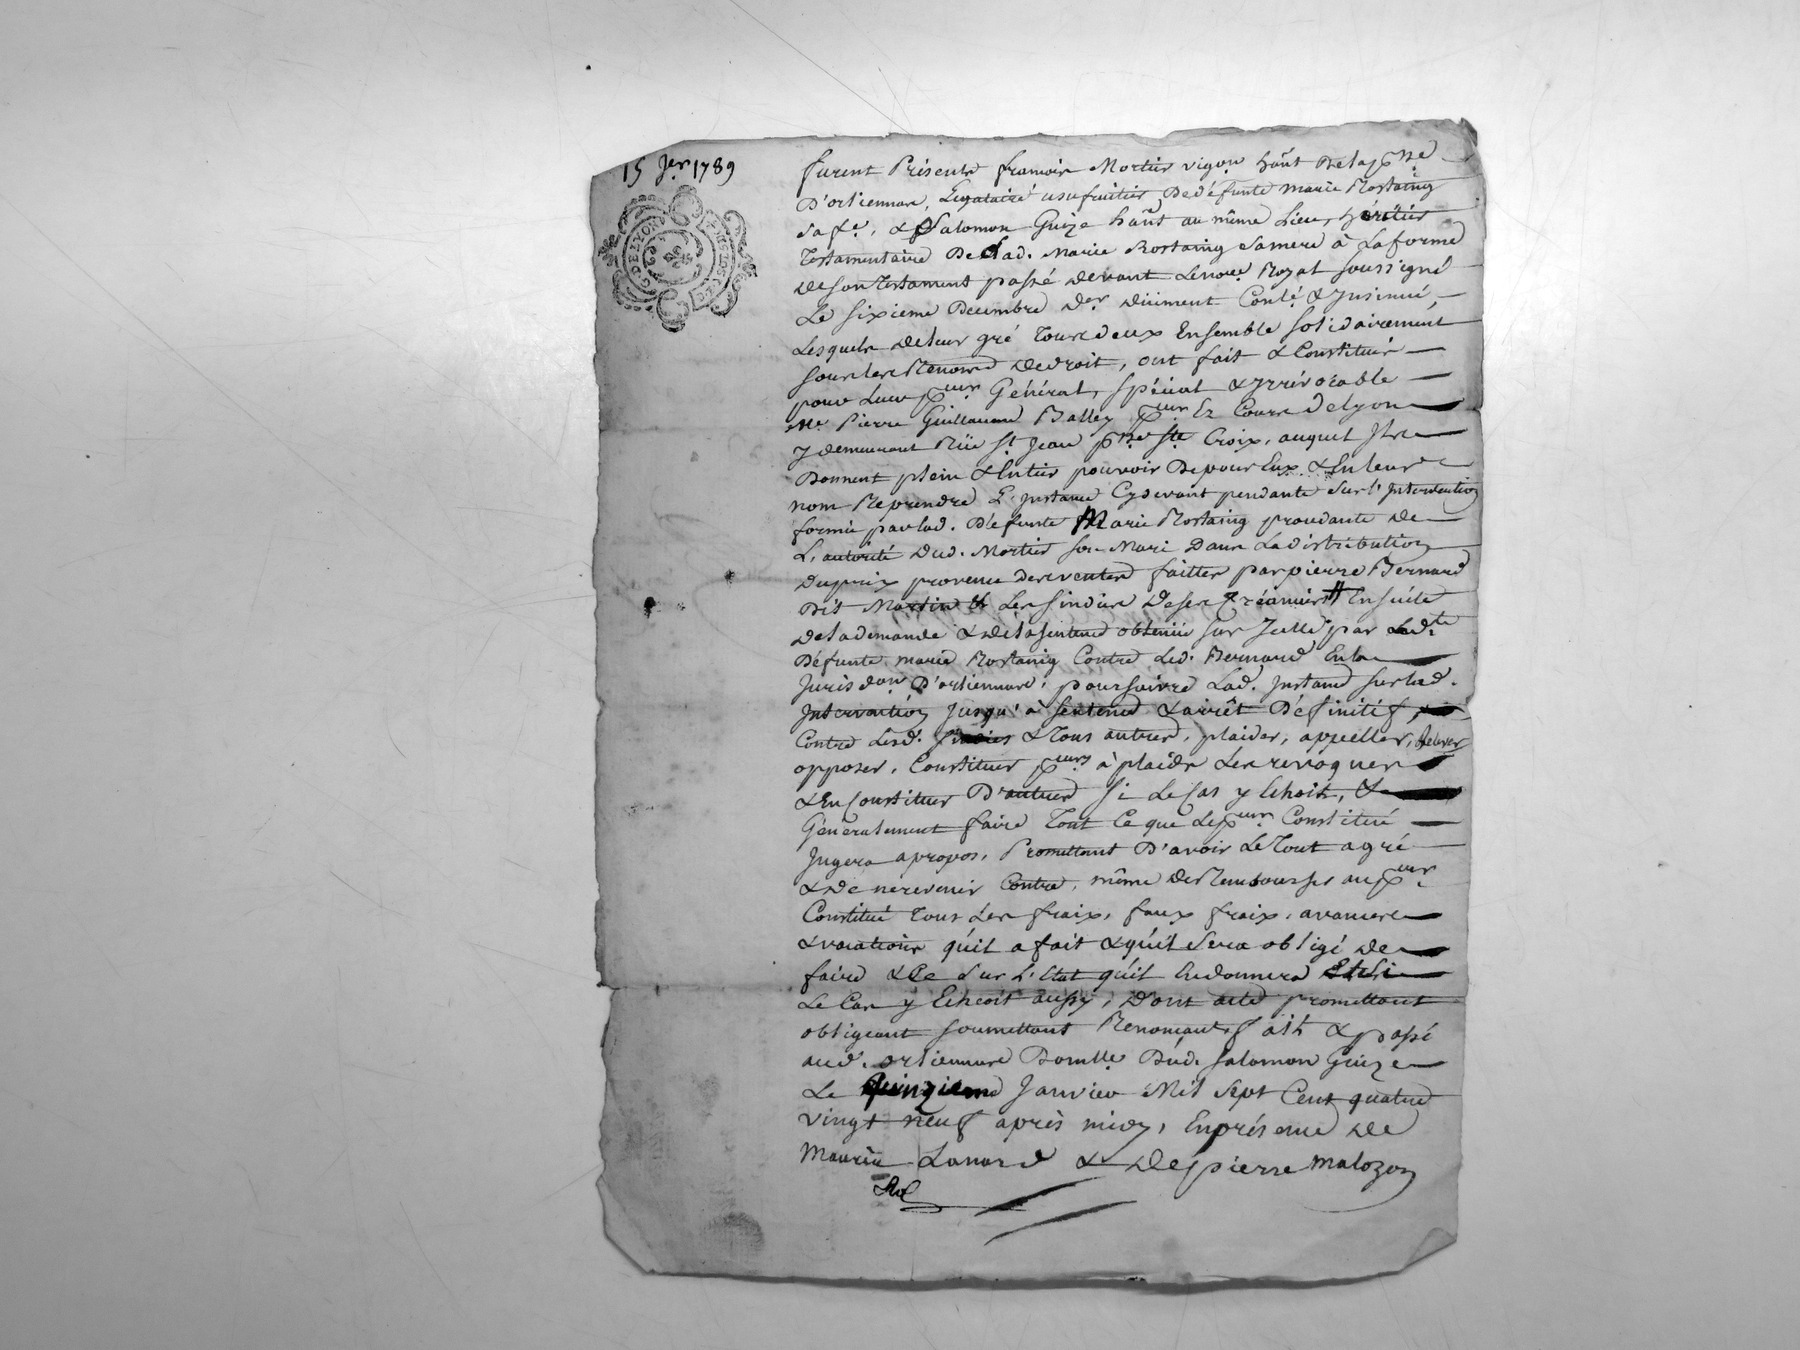 15 Jer 1789
G. DE LYON
furent Présents françois Mortier vigon habt Delapsse
D'orliennare, Legataire usufruitier De défunte Marie Rostaing
sa fe, & Salomon Guize habt au même Lieu, héritier
Testamentaire De Lad. Marie Rostaing sa mere à La forme
de son Testament passé devant Le noire Royal soussigné
Le sixieme Decembre der düement Conlé & Insinué,
Lesquels de leur gré Tous deux Ensemble solidairement
sous les Renonces de droit, ont fait & Constitué
pour Leur pur Général, spécial & Irrévocable
Me Pierre Guillaume Balley pur Ez Cours de Lyon
y demeurant Rüe St Jean psse Ste Croix, auquel Ils
Donnent plein & Entier pouvoir De pour Eux & En leur
nom Reprendre L'Instance Cydevant pendante sur l'Intervention
formée par Lad. Défunte Marie Rostaing procdante de
L'autorité Dud. Mortier son Mari Dans La distribution
du prix provenu des ventes faittes par pierre Bernard
Dit Martin & Les sindics de ses créanciers Ensuite
de la demande & de la sentence obtenüe sur Icelle par Ladte
Défunte marie Rostaing Contre Led. Bernard En la
Jurisdon D'orliennare, poursuivre Lad. Instance sur lad.
Intervention Jusqu'à sentence & arrêt Définitif,
Contre Lesd. sindics & Tous autres, plaider, appeller, Relever
opposer, Constituer purs à plaids Les révoquer
& En Constituer D'autres si Le Cas y Echoit, &
Généralement faire Tout Ce que Le pur Constitué
Jugera apropos, Promettant D'avoir Le Tout agré
& de ne revenir Contre, même de Rembourser au pur
Constitué Tous Les fraix, faux fraix, avances
& vacations qu'il a fait & qu'il sera obligé de
faire & Ce sur L'Etat qu'il En donnera
Le Cas y Echeoit aussy, Dont acte promettant
obligeant soumettant Renonçant, fait & passé
aud. orliennare Domlle Dud. Salomon Guize
Le Quinzieme Janvier Mil sept Cent quatre
vingt neuf après midy, En présence de
Maurice & de pierre Malozon